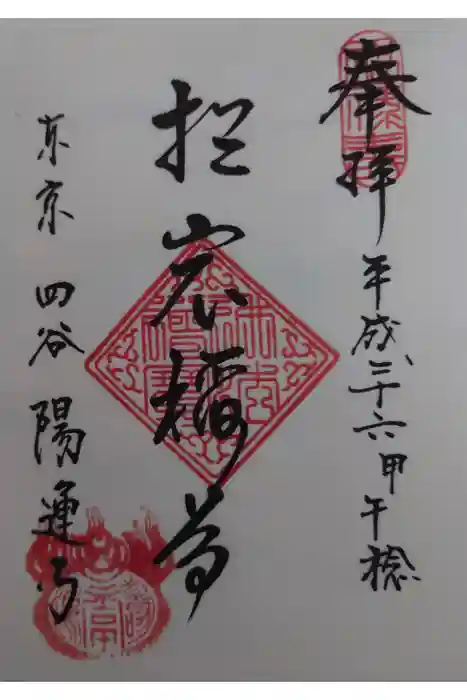 奉拝 平成二十六甲午稔
於岩稲荷
東京 四谷 陽運寺